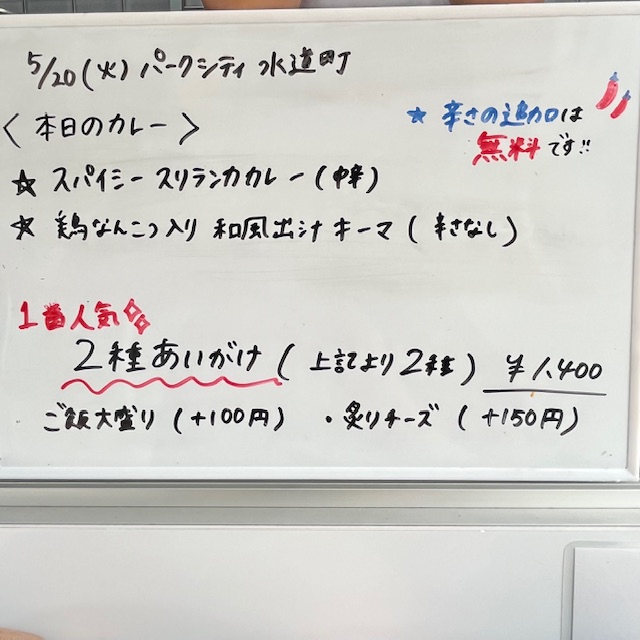 5/20(火) パークシティ 水道町
〈 本日のカレー 〉
★ 辛さの追加は
無料です!!
☆ スパイシー スリランカカレー (中辛)
☆ 鶏なんこつ入り 和風出汁キーマ ( 辛さなし )
1番人気
2種あいがけ ( 上記より2種 ) ¥1,400
ご飯大盛り (+100円) ・炙りチーズ ( +150円)